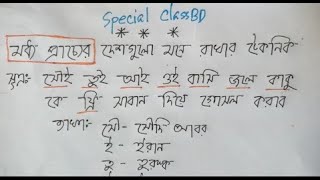 Special ClassBD
* * *
মধ্য প্রাচ্যের দেশগুলো মনে রাখার টেকনিক
সূত্র: সৌই তুই আই ওই বাসি জলে কাকু
কে মি সাবান দিয়ে গোসল করাব
ব্যাখ্যা: সৌ - সৌদি আরব
ই - ইরান
তু - তুরস্ক